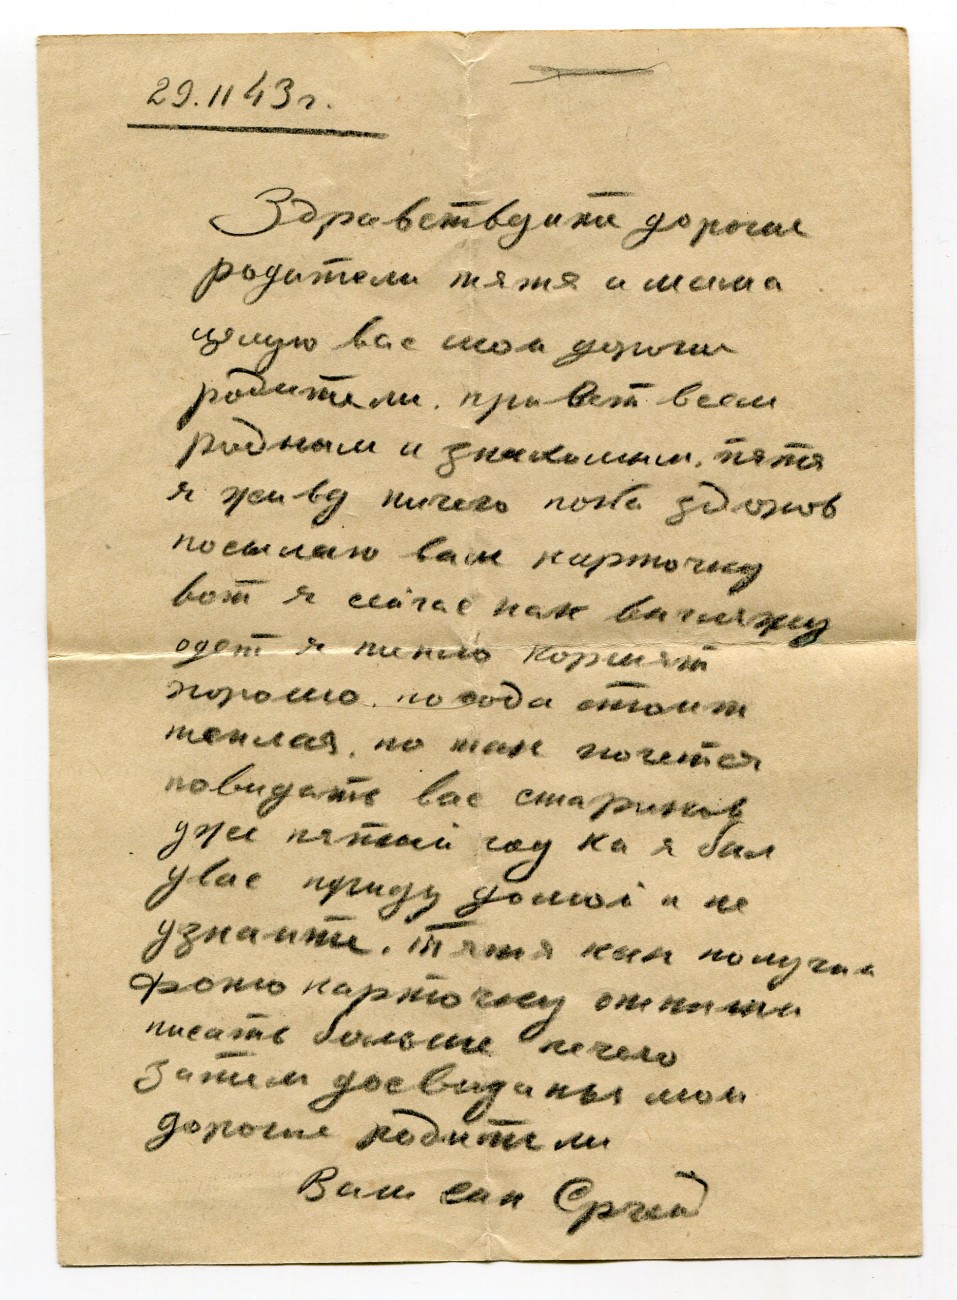 29.II 43 г.
Здравствуити дорогие
родители тятя и мама
цялую вас мои дороги
родители. привет всем
родным и знакомым. тятя
я живу ничего пока здоров
посылаю вам карточку
вот я сейчас как выгляжу
одет я тепло кормят
хорошо. погода стоит
теплая. но так хочется
повидать вас стариков
уже пятый год ка я был
увас приду домой и не
узнаите. Тятя как получиш
фото карточку отпиши
писать больше нечего
Затем досвиданья мои
дорогие родители
Ваш сын Сргей